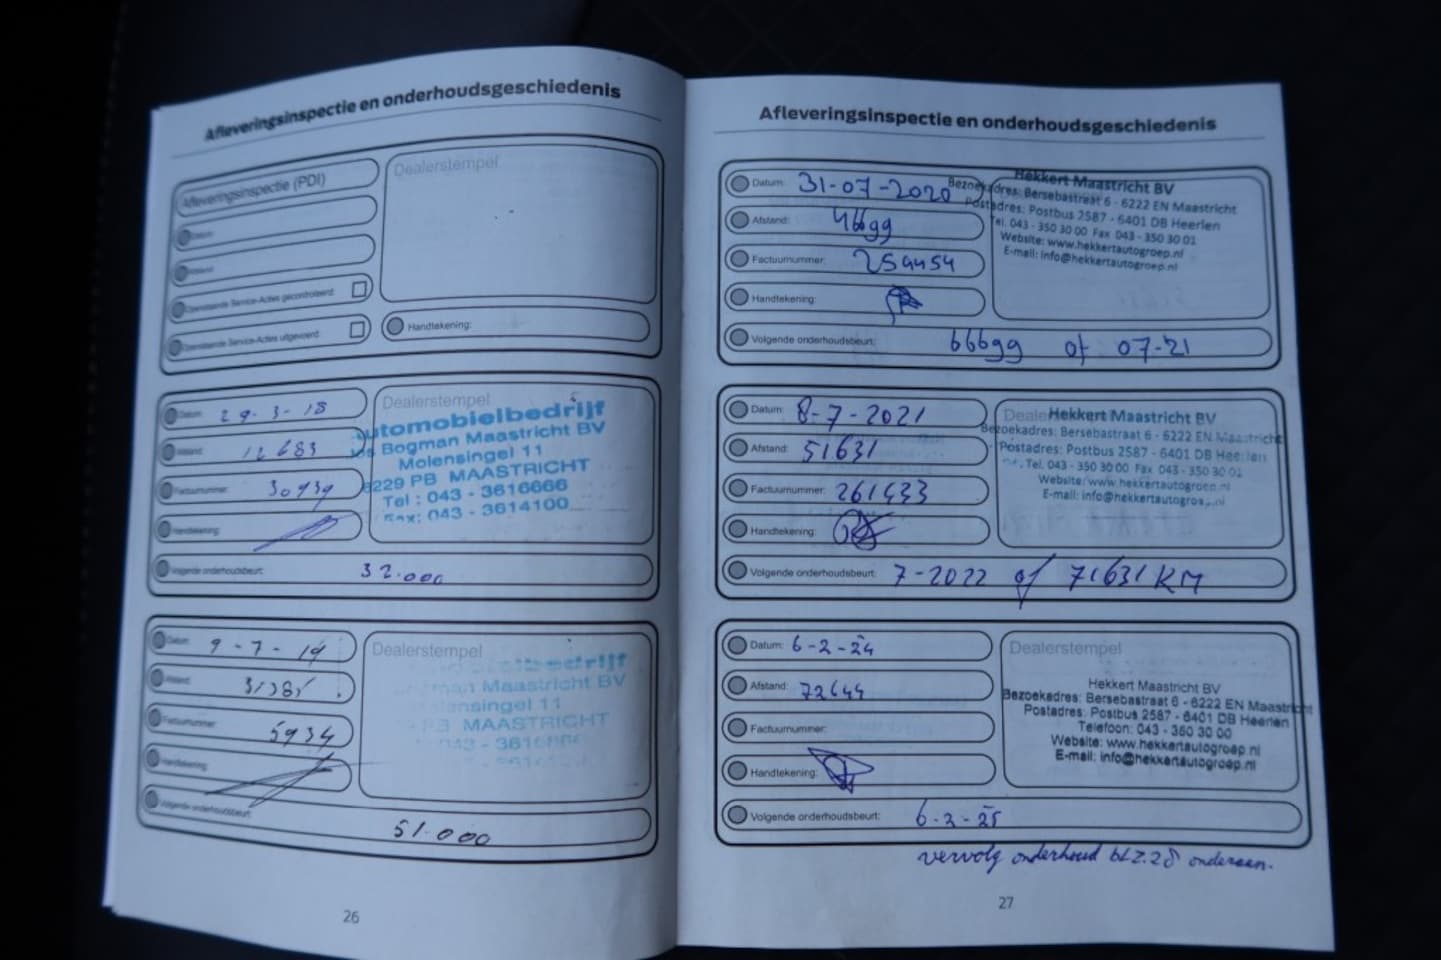 Afleveringsinspectie en onderhoudsgeschiedenis
Afleveringsinspectie (PDI)
Dealerstempel
Datum:
Afstand:
Openstaande Service-Acties gecontroleerd:
Openstaande Service-Acties uitgevoerd:
Handtekening:
Datum: 29-3-18
Afstand: 12683
Factuurnummer: 30939
Handtekening:
Dealerstempel
Automobielbedrijf
Jos Bogman Maastricht BV
Molensingel 11
6229 PB MAASTRICHT
Tel : 043 - 3616666
Fax: 043 - 3614100
Volgende onderhoudsbeurt: 32.000
Datum: 9-7-19
Afstand:
Factuurnummer: 5934
Handtekening:
Dealerstempel
Maastricht BV
Molensingel 11
PB MAASTRICHT
Volgende onderhoudsbeurt: 51.000
26
Afleveringsinspectie en onderhoudsgeschiedenis
Datum: 31-07-2020
Afstand: 46699
Factuurnummer: 254454
Handtekening:
Hekkert Maastricht BV
Bezoekadres: Bersebastraat 6 - 6222 EN Maastricht
Postadres: Postbus 2587 - 6401 DB Heerlen
Tel. 043 - 350 30 00 Fax 043 - 350 30 01
Website: www.hekkertautogroep.nl
E-mail: info@hekkertautogroep.nl
Volgende onderhoudsbeurt: 66699 of 07-21
Datum: 8-7-2021
Afstand: 51631
Factuurnummer: 261433
Handtekening:
Hekkert Maastricht BV
Bezoekadres: Bersebastraat 6 - 6222 EN Maastricht
Postadres: Postbus 2587 - 6401 DB Heerlen
Tel. 043 - 350 30 00 Fax 043 - 350 30 01
Website: www.hekkertautogroep.nl
E-mail: info@hekkertautogroep.nl
Volgende onderhoudsbeurt: 7-2022 of 71631 KM
Datum: 6-2-24
Afstand: 72644
Factuurnummer:
Handtekening:
Dealerstempel
Hekkert Maastricht BV
Bezoekadres: Bersebastraat 6 - 6222 EN Maastricht
Postadres: Postbus 2587 - 6401 DB Heerlen
Telefoon: 043 - 350 30 00
Website: www.hekkertautogroep.nl
E-mail: info@hekkertautogroep.nl
Volgende onderhoudsbeurt: 6-2-25
vervolg onderhoud blz.28 onderaan.
27